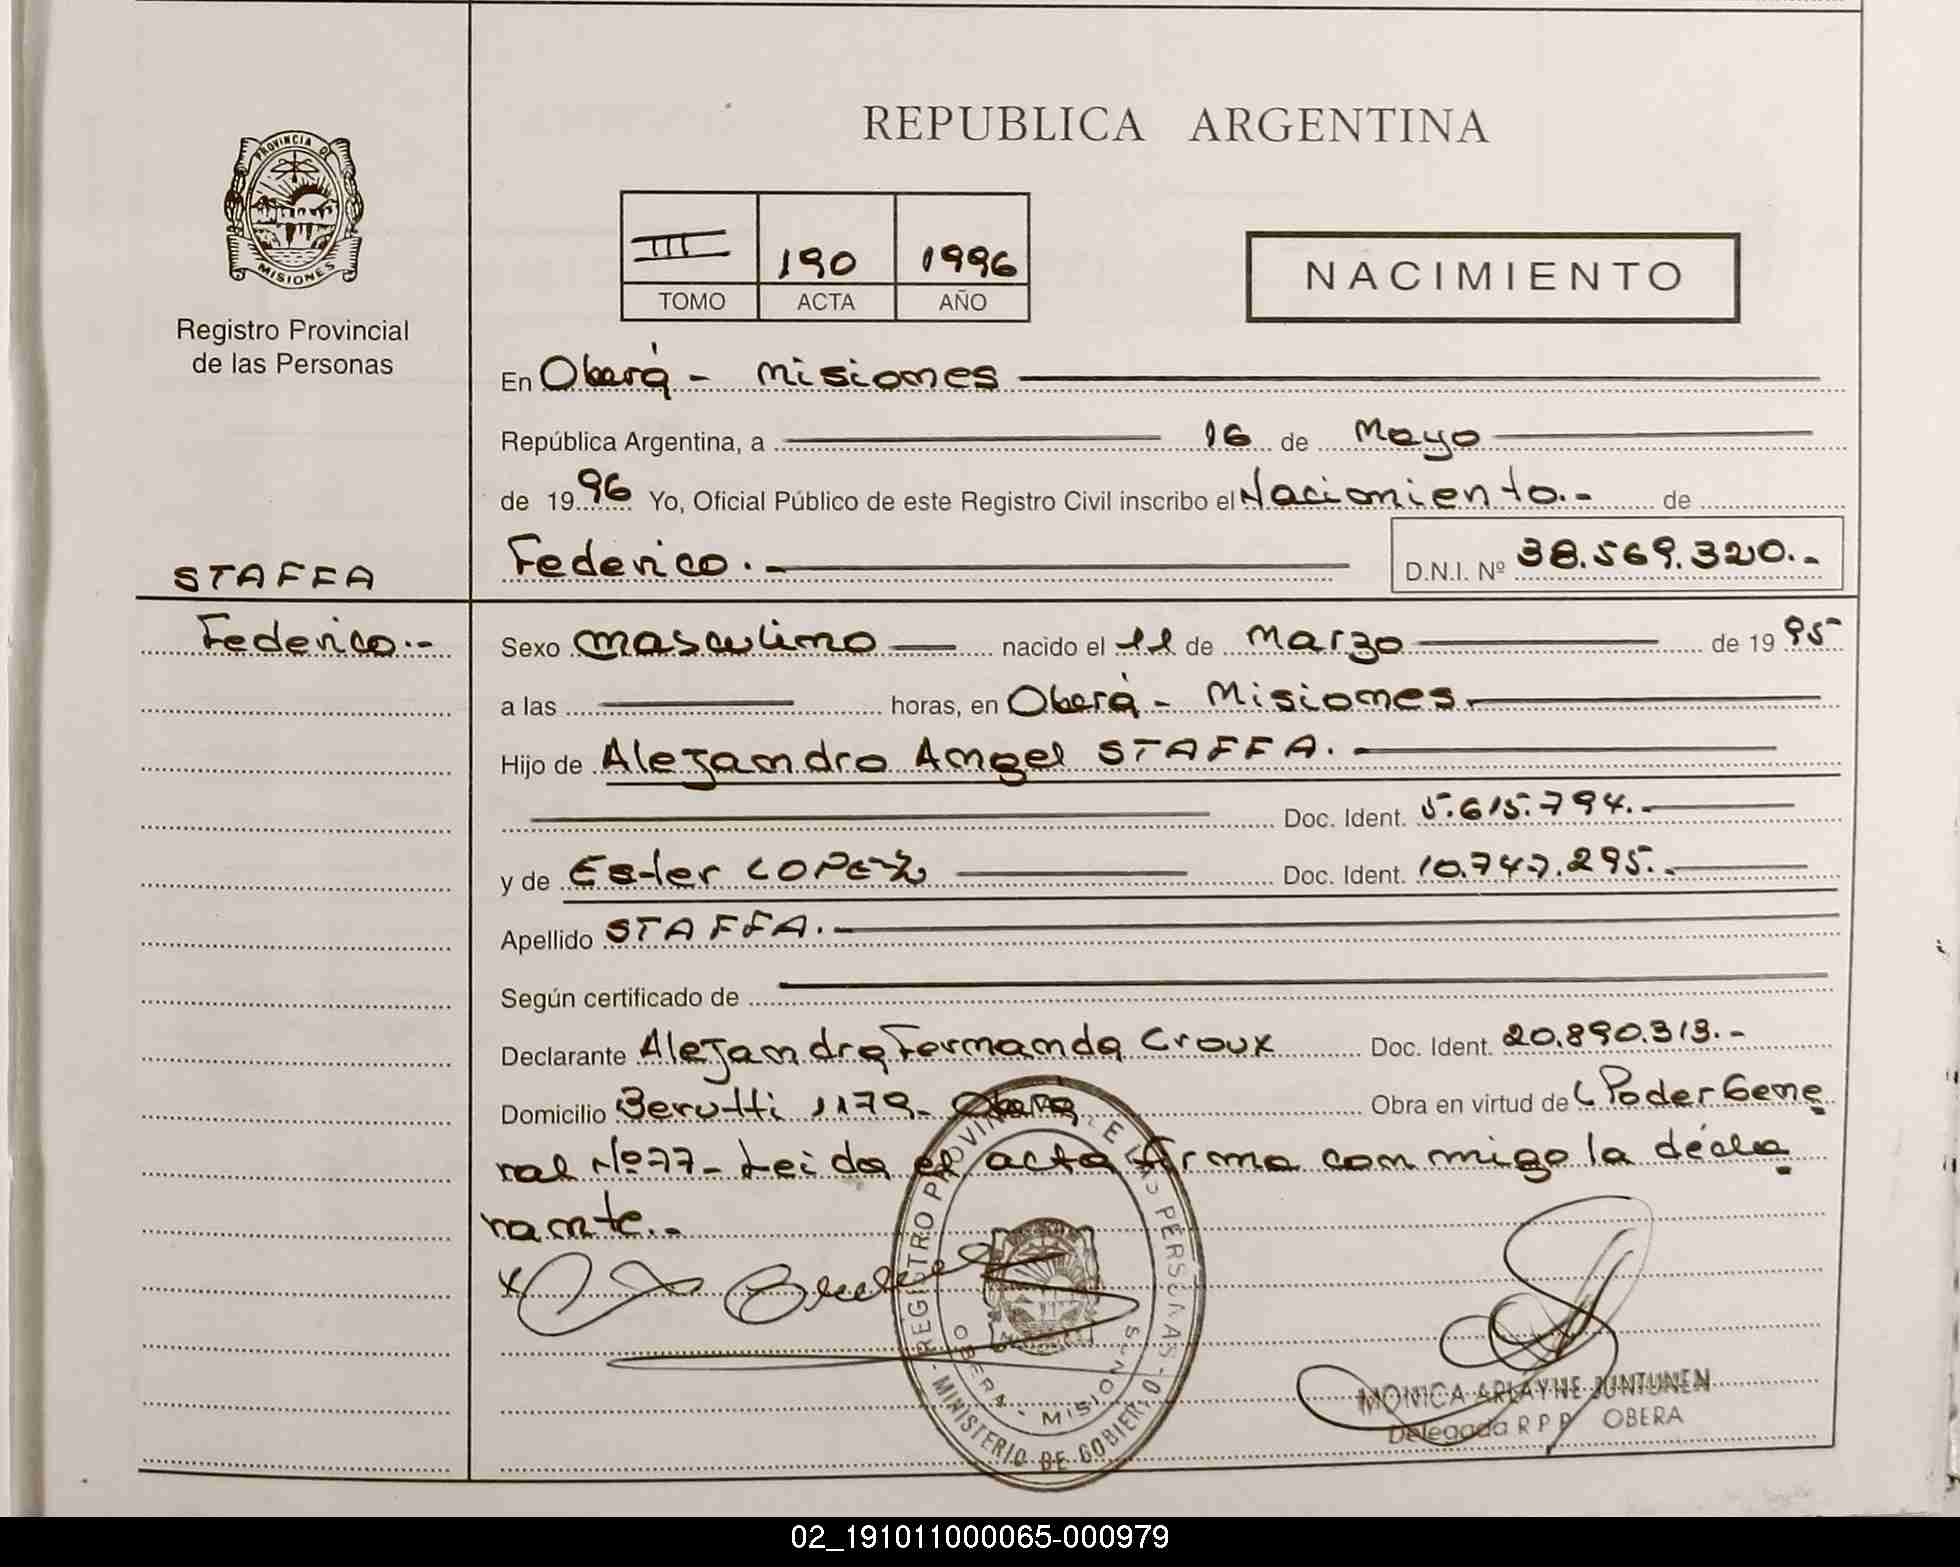 REPUBLICA ARGENTINA
PROVINCIA DE
MISIONES
Registro Provincial
de las Personas
III 190 1996
TOMO ACTA AÑO
NACIMIENTO
En Oberá - Misiones
República Argentina, a 16 de Mayo
de 1996 Yo, Oficial Público de este Registro Civil inscribo el Nacimiento.- de
STAFFA
Federico.-
Federico.-
D.N.I. Nº 38.569.320.-
Sexo masculino nacido el 11 de Marzo de 1995
a las horas, en Oberá - Misiones.
Hijo de Alejandro Angel STAFFA.
Doc. Ident. 5.615.794.-
y de Ester LOPEZ Doc. Ident. 10.747.295.-
Apellido STAFFA.-
Según certificado de
Declarante Alejandra Fernanda Croux Doc. Ident. 20.890.313.-
Domicilio Berutti 1179- Obera Obra en virtud de Poder Gene
ral Nº 77- Leida el acta firma conmigo la decla
rante.-
REGISTRO PROVINCIAL DE LAS PERSONAS
OBERA - MISIONES
MINISTERIO DE GOBIERNO
MONICA ARLAYNE JUNTUNEN
Delegada R P P OBERA
02_191011000065-000979